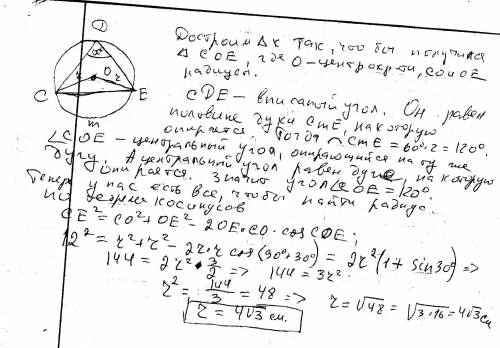 D
60°
r
O
r
C
E
m
Достроим Δк так, что бы получился
Δ COE, где O - центр окр-ти, CO и OE
радиусы.
CDE - вписаный угол. Он равен
половине дуги CmE, на которую
опирается. Тогда ◠CmE = 60°·2 = 120°.
∠COE - центральный угол, опирающийся на ту же
дугу. А центральный угол равен дуге, на которую
опирается. Значит угол ∠COE = 120°
Теперь у нас есть все, чтобы найти радиус.
По теореме косинусов
CE² = CO² + OE² - 2OE·CO·cos COE;
12² = r² + r² - 2r·r cos(90°+30°) = 2r²(1 + sin30°) =>
144 = 2r²·3/2 => 144 = 3r².
r² = 144/3 = 48 => r = √48 = √3·16 = 4√3 см
r = 4√3 см.